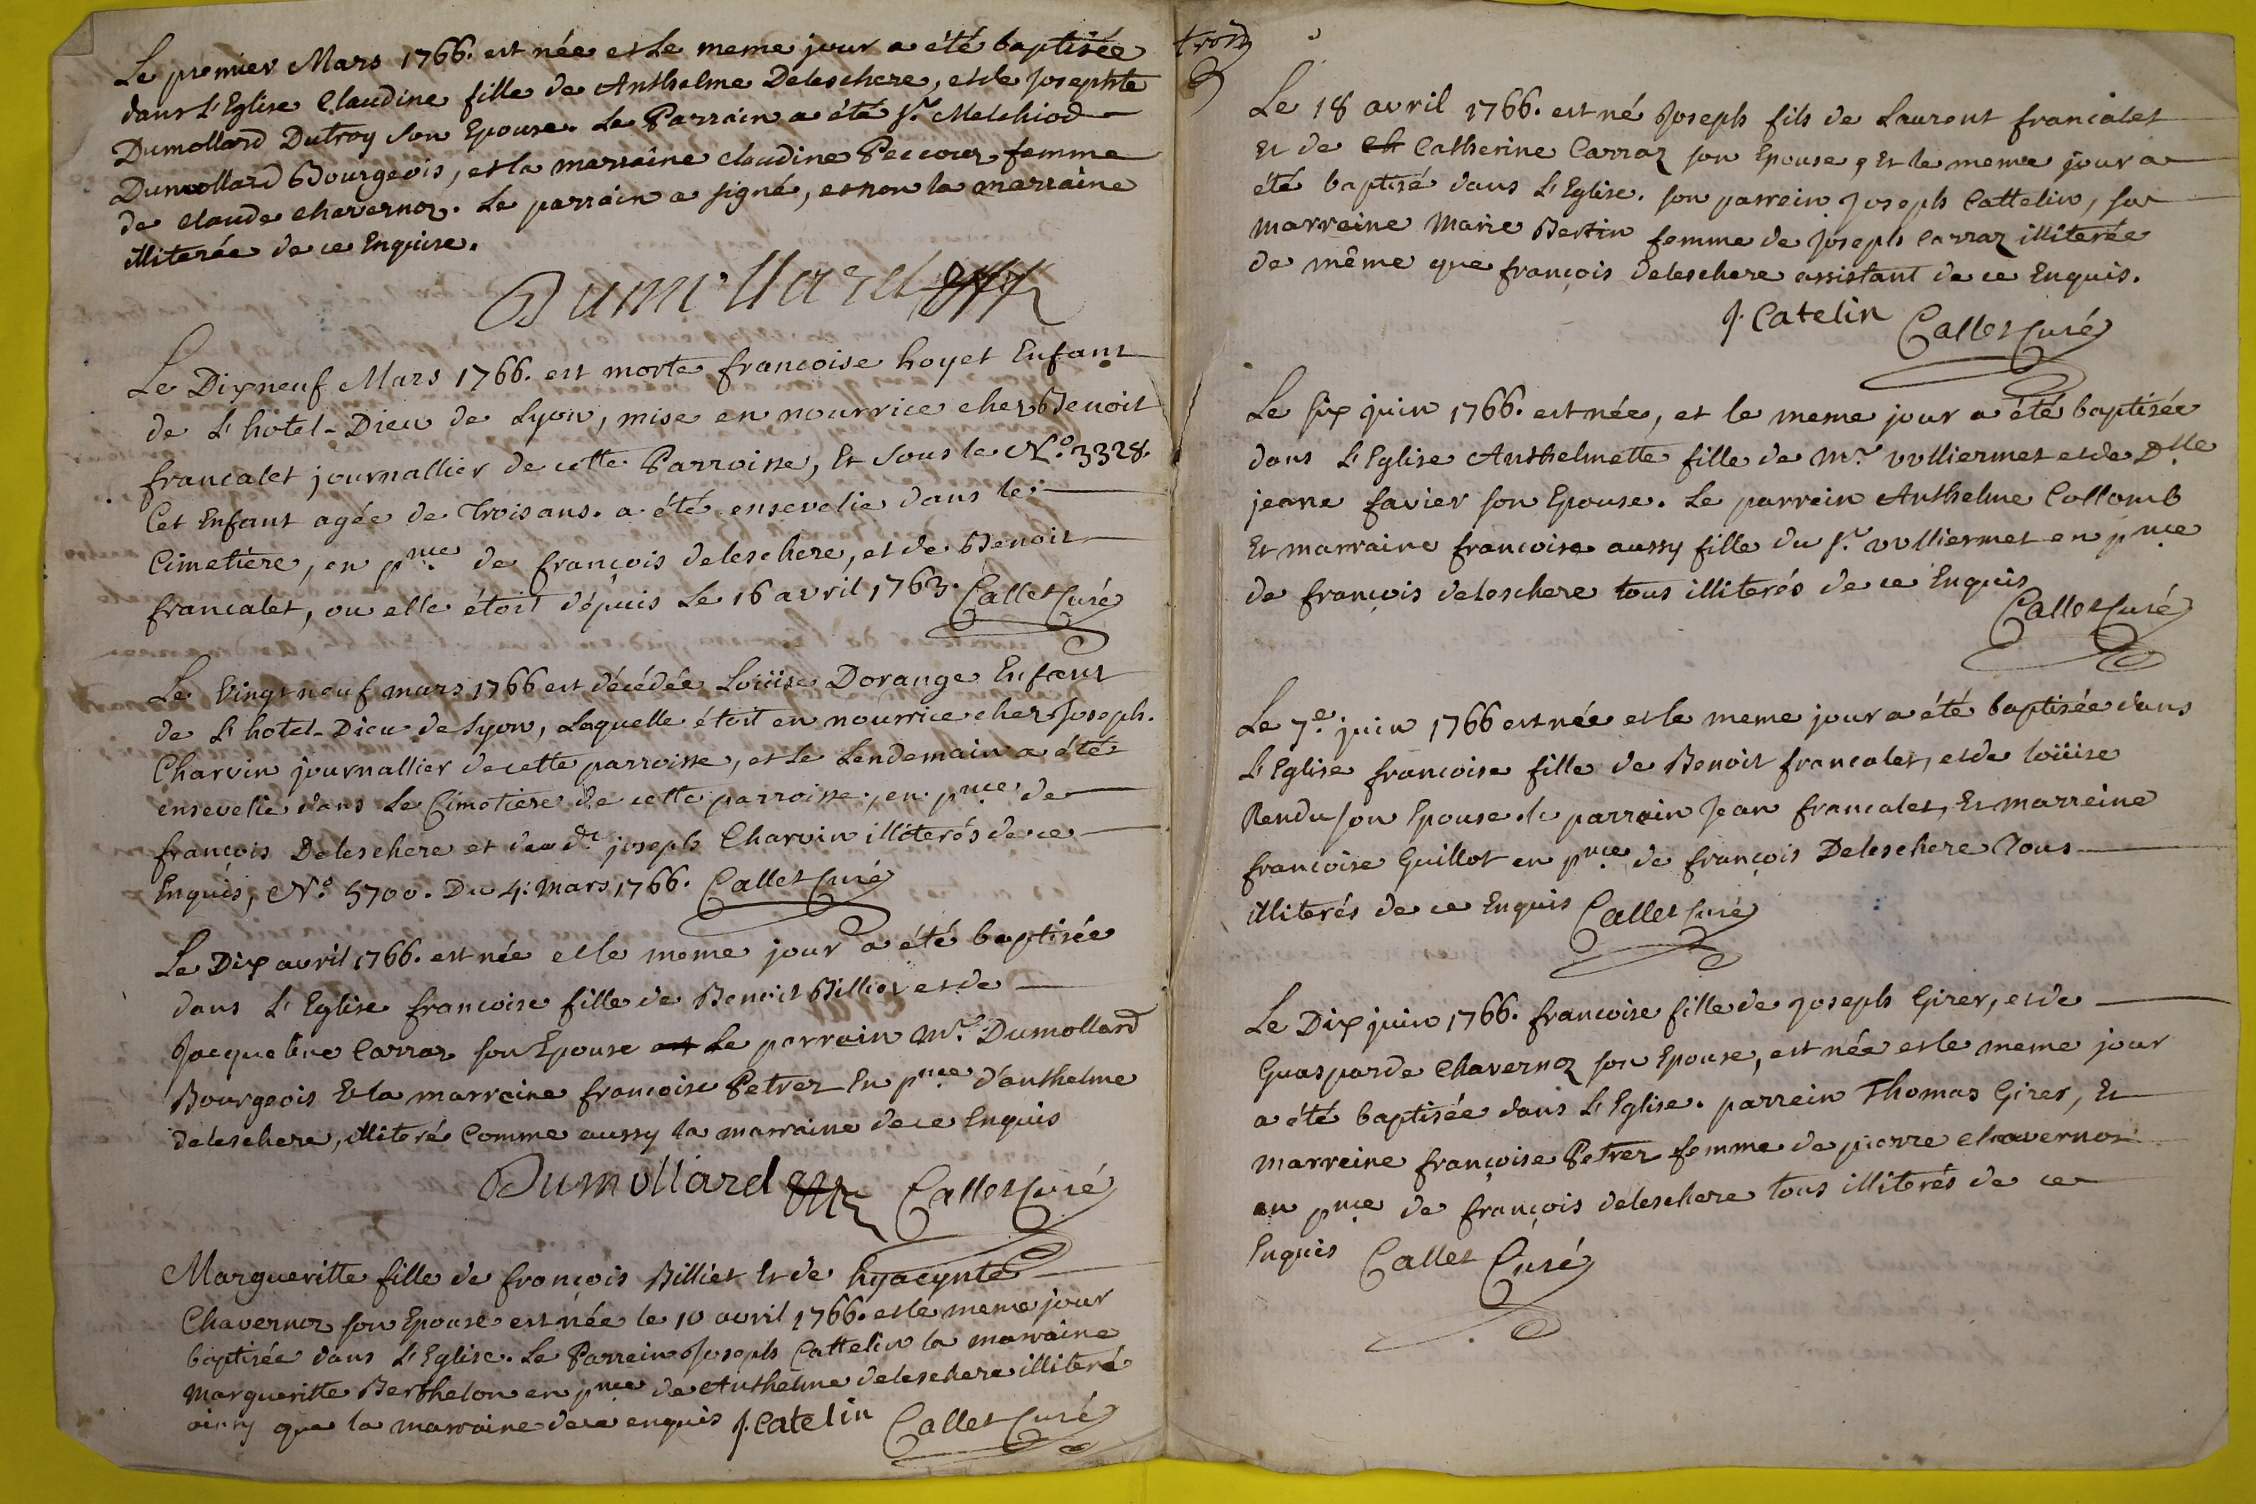 Le premier Mars 1766. est née et Le meme jour a été baptisée
dans L'Eglise Claudine fille de Anthelme Deleschere, et de Josephte
Dumollard Dutroy son Epouse. Le Parrain a été Sr. Melchiod
Dumollard Bourgeois, et la marraine claudine Peccour femme
de claude chavernoz. Le parrain a signé, et non la marraine
illiterée de ce Enquise.
Dumollard
Le Dixneuf Mars 1766. est morte francoise hoyet Enfant
de L'hôtel-Dieu de Lyon, mise en nourrice chez Benoit
francalet journallier de cette Parroisse, Et sous le No. 3328.
Cet Enfant agée de Trois ans. a été ensevelie dans le
Cimetière, en pnce de françois deleschere, et de Benoit
francalet, ou elle étoit dépuis Le 16 avril 1763. Callet Curé
Le Vingt neuf mars 1766 est décédée Loüise Dorange Enfant
de L'hotel-Dieu de Lyon, Laquelle étoit en nourrice chez Joseph
Charvin journallier de cette parroisse, et Le Lendemain a été
ensevelie dans Le Cimetiere de cette parroisse, en pnce de
françois Deleschere et de joseph Charvin illiterés de ce
Enquis, No 5700. Du 4. Mars 1766. Callet Curé
Le Dix avril 1766. est née et le meme jour a été baptisée
dans L'Eglise francoise fille de Benoit Billiet et de
Jacqueline Carraz son Epouse Le parrain Mr. Dumollard
Bourgeois Et la marraine francoise Petrez En pnce d'anthelme
deleschere, illiteré Comme aussy la marraine de ce Enquis
Dumollard Callet Curé
Margueritte fille de françois Billiet Et de hyacynte
Chavernoz son Epouse est née le 10 avril 1766. et le meme jour
baptisée dans L'Eglise. Le Parrein Joseph Cattelin la marraine
Margueritte Berthelon en pnce de Anthelme deleschere illiteré
ainsy que la marraine de ce enquis J. Catelin Callet Curé
trois
Le 18 avril 1766. est né Joseph fils de Laurent francalet
Et de Catherine Carraz son Epouse, Et le meme jour a
été baptisé dans L'Eglise. son parrein Joseph Cattelin, sa
marreine Marie Bertin femme de Joseph Carraz illiterée
de même que françois deleschere assistant de ce Enquis.
J. Catelin Callet Curé
Le Six juin 1766. est née, et le meme jour a été baptisée
dans L'Eglise Anthelmette fille de Mr. vulliermet et de Dlle
jeane favier son Epouse. Le parrein Anthelme Collomb
Et marraine francoise aussy fille du Sr. vulliermet en pnce
de françois deleschere tous illiterés de ce Enquis
Callet Curé
Le 7e. juin 1766 est née et le meme jour a été baptisée dans
L'Eglise francoise fille de Benoit francalet, et de loüise
Rendu son Epouse. le parrain Jean francalet, Et marreine
francoise Guillot en pnce de françois Deleschere Tous
illiterés de ce Enquis Callet Curé
Le Dix juin 1766. francoise fille de Joseph Girer, et de
Guasparde Chavernoz son Epouse, est née et le meme jour
a été baptisée dans L'Eglise. parrein Thomas Girer, Et
marreine françoise Petrez femme de pierre chavernoz
en pnce de françois deleschere tous illiterés de ce
Enquis Callet Curé